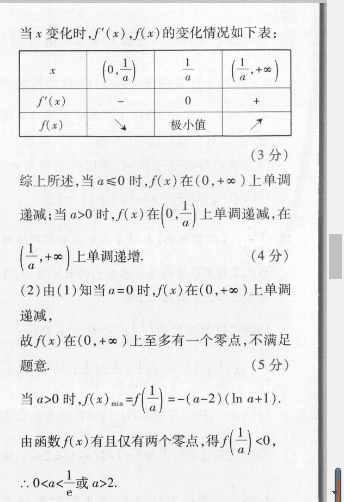 当 x 变化时,f′(x),f(x)的变化情况如下表:
x (0,1/a) 1/a (1/a,+∞)
f′(x) - 0 +
f(x) ↘ 极小值 ↗
(3 分)
综上所述,当 a≤0 时,f(x)在(0,+∞)上单调
递减;当 a>0 时,f(x)在(0,1/a)上单调递减,在
(1/a,+∞)上单调递增. (4 分)
(2)由(1)知当 a=0 时,f(x)在(0,+∞)上单调
递减,
故 f(x)在(0,+∞)上至多有一个零点,不满足
题意. (5 分)
当 a>0 时,f(x)min=f(1/a)=-(a-2)(ln a+1).
由函数 f(x)有且仅有两个零点,得 f(1/a)<0,
∴ 0<a<1/e或 a>2.